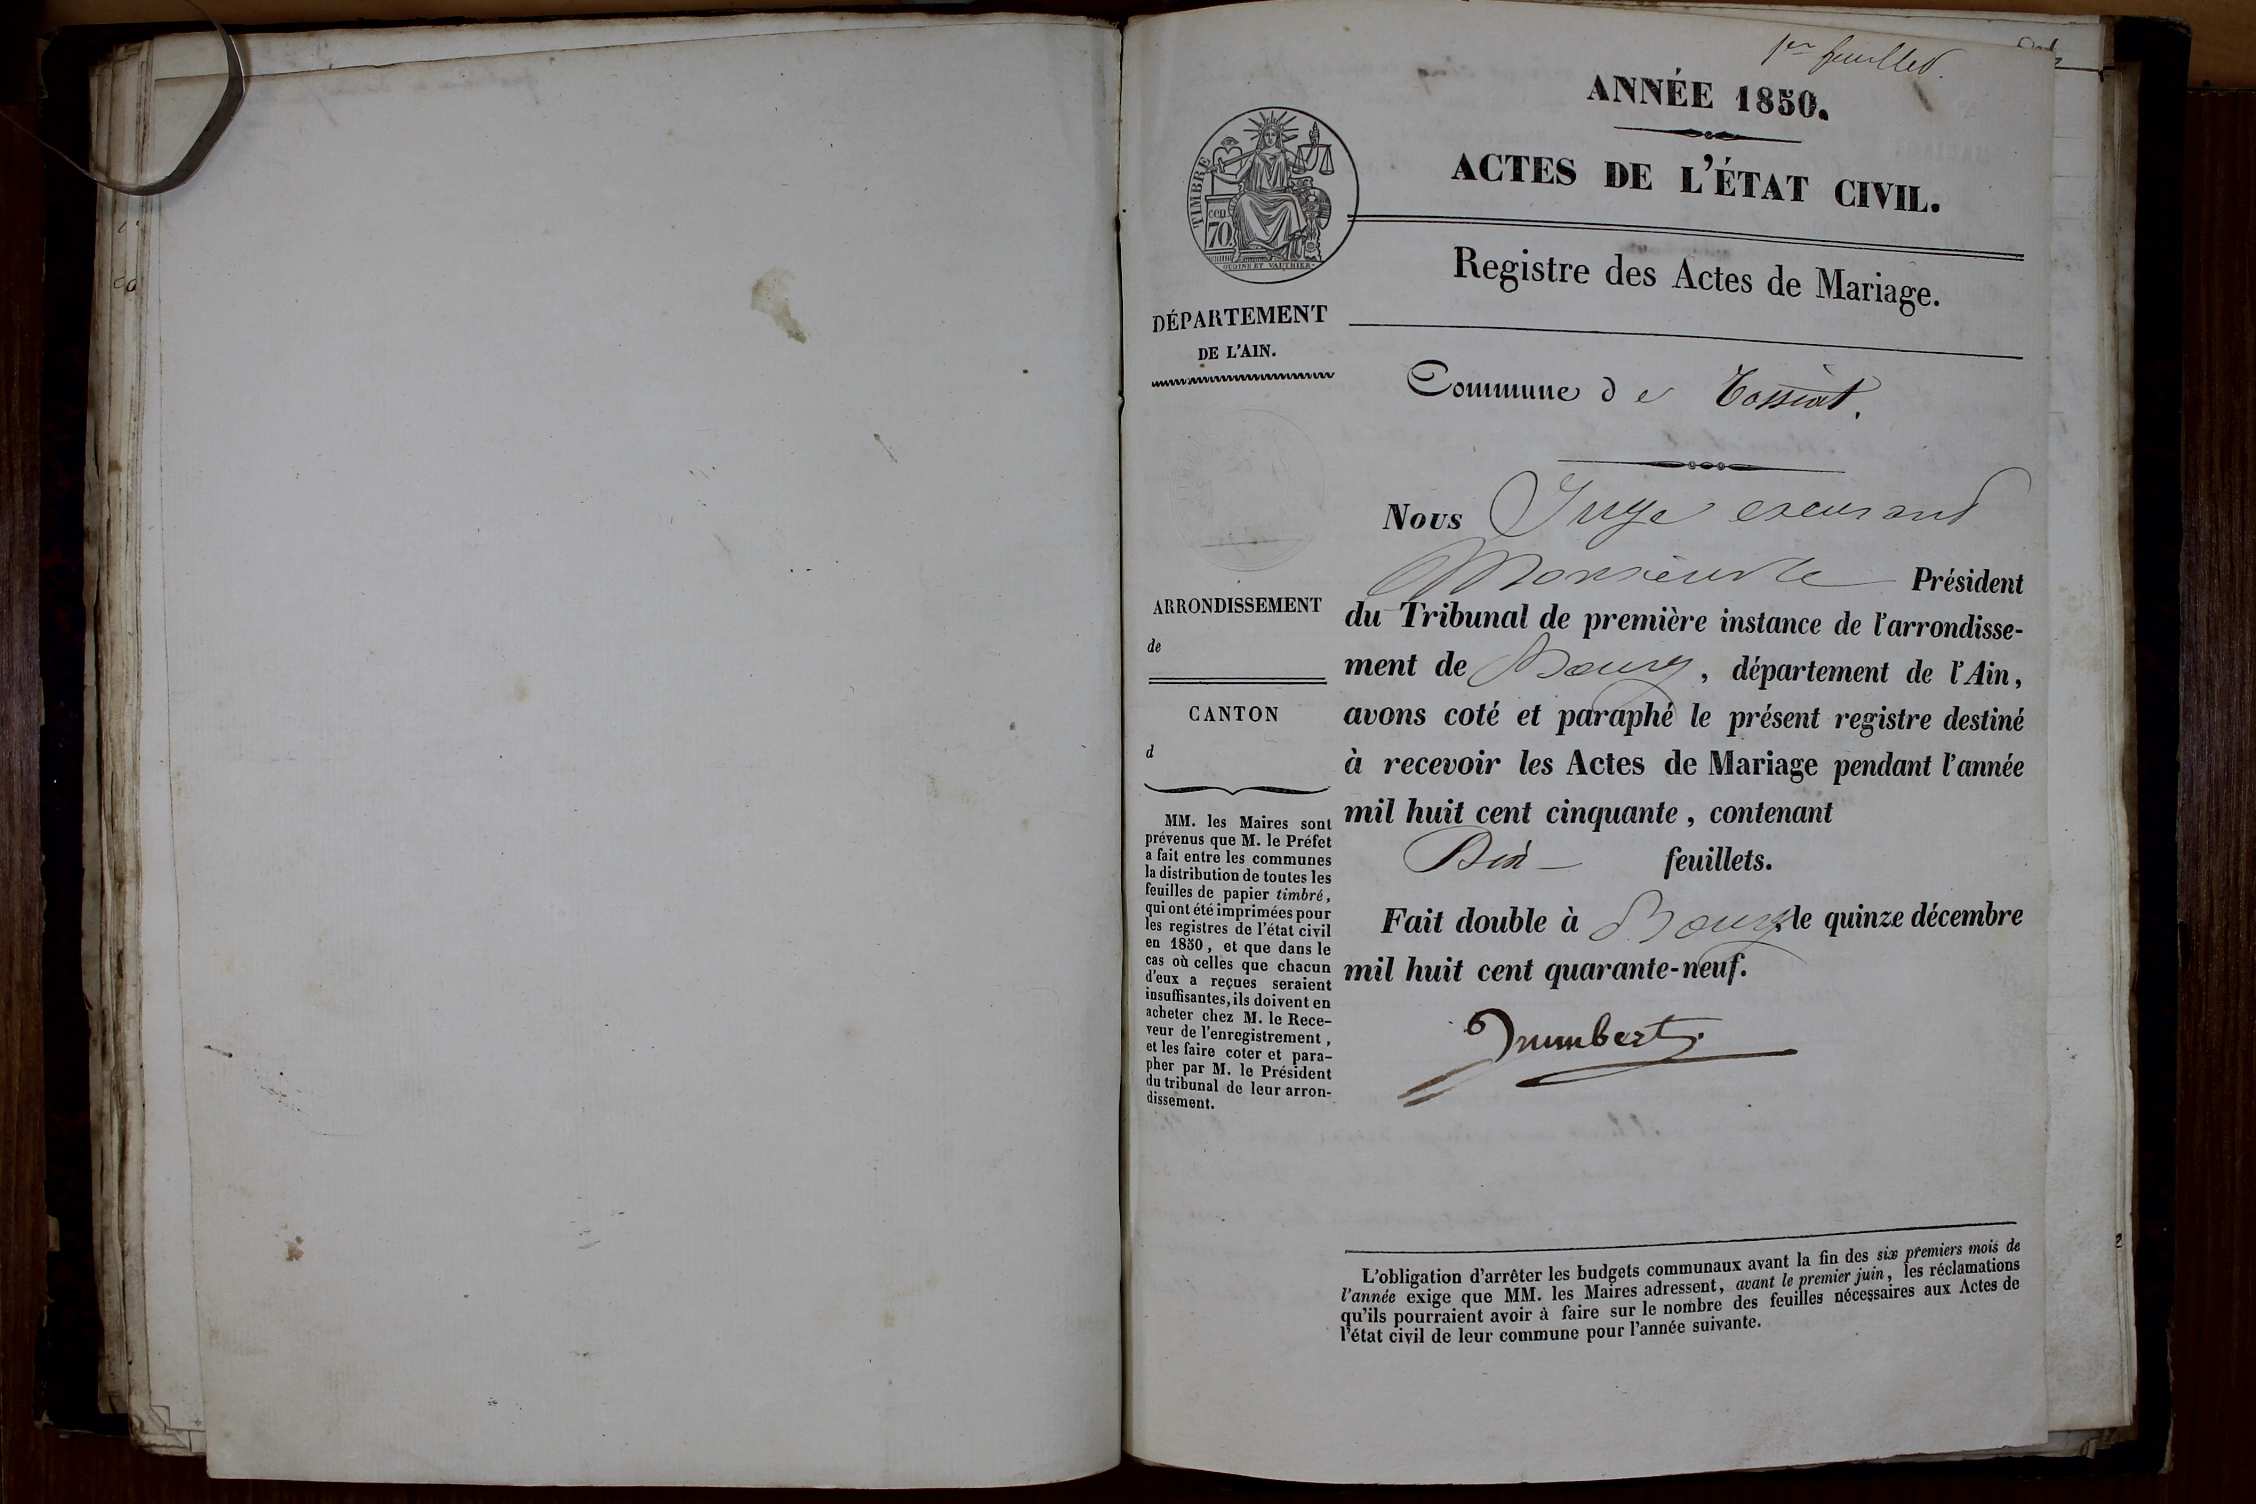 1er feuillet.
ANNÉE 1850.
ACTES DE L'ÉTAT CIVIL.
TIMBRE
cen.
70
OUDINÉ ET VAUTHIER
Registre des Actes de Mariage.
DÉPARTEMENT
DE L'AIN.
Commune de Tossiat.
Nous Juge
Monsieur le Président
du Tribunal de première instance de l'arrondisse-
ment de Bourg, département de l'Ain,
avons coté et paraphé le présent registre destiné
à recevoir les Actes de Mariage pendant l'année
mil huit cent cinquante, contenant
Dix feuillets.
Fait double à Bourg le quinze décembre
mil huit cent quarante-neuf.
ARRONDISSEMENT
de
CANTON
d
MM. les Maires sont
prévenus que M. le Préfet
a fait entre les communes
la distribution de toutes les
feuilles de papier timbré,
qui ont été imprimées pour
les registres de l'état civil
en 1850, et que dans le
cas où celles que chacun
d'eux a reçues seraient
insuffisantes, ils doivent en
acheter chez M. le Rece-
veur de l'enregistrement,
et les faire coter et para-
pher par M. le Président
du tribunal de leur arron-
dissement.
L'obligation d'arrêter les budgets communaux avant la fin des six premiers mois de
l'année exige que MM. les Maires adressent, avant le premier juin, les réclamations
qu'ils pourraient avoir à faire sur le nombre des feuilles nécessaires aux Actes de
l'état civil de leur commune pour l'année suivante.